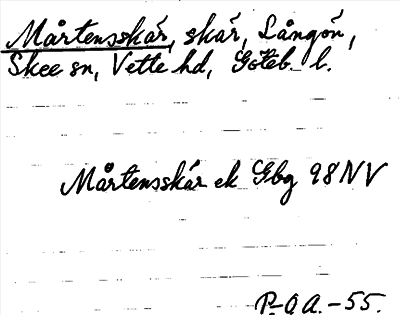 Mårtensskär, skär, Långön,
Skee sn, Vette hd, Göteb. l.
Mårtensskär ek Gbg 98 NV
P-O A. -55.